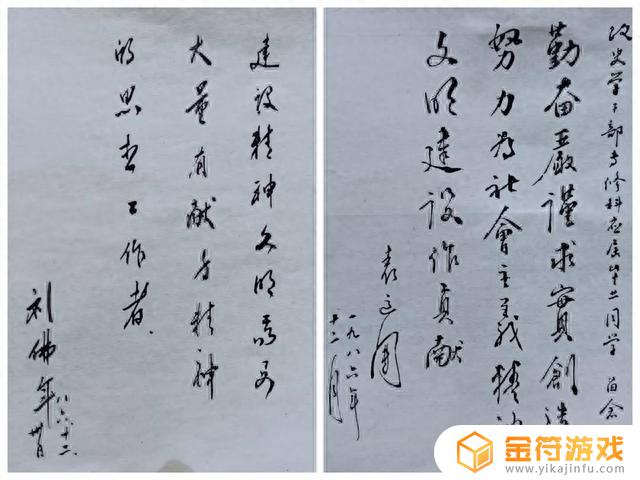 建设精神文明需要
大量有献身精神
的思想工作者.
刘佛年
八六.十二.
卅日
政史学干部专修科应届毕业同学 留念
勤奋嚴謹求實創
努力为社會主義精
文明建设作贡献
袁运开
一九八六年
十二月
金符游戏
www.yikajinfu.com